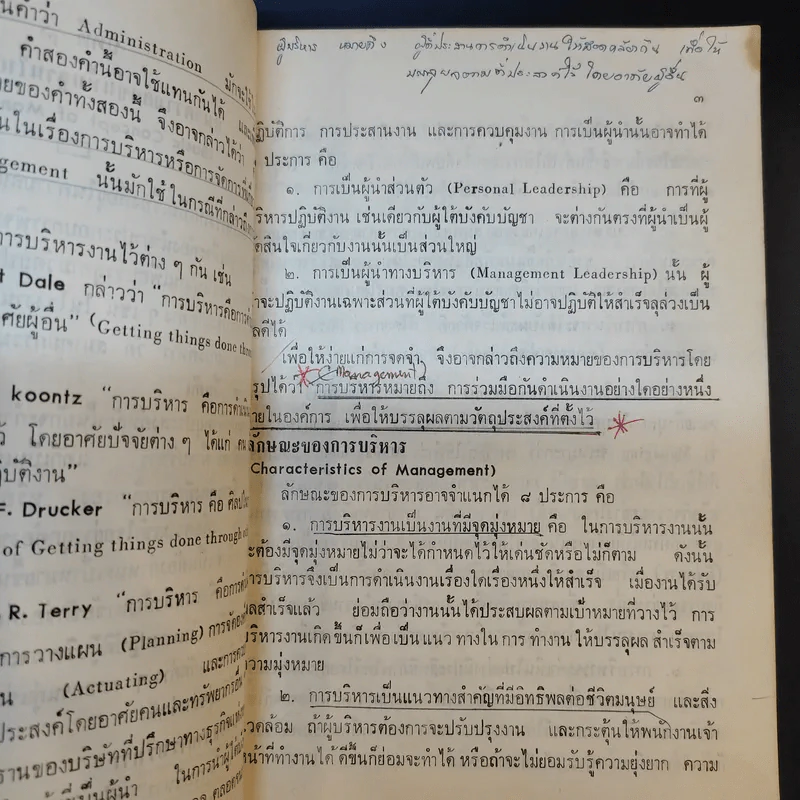 นคำว่า Administration มักจะใช้
คำสองคำนี้อาจใช้แทนกันได้
ของคำทั้งสองนี้ จึงอาจกล่าวได้ว่า
ในเรื่องการบริหารหรือการจัดการ
gement นั้นมักใช้ ในกรณีที่กล่าวถึง
การบริหารงานไว้ต่าง ๆ กัน เช่น
t Dale กล่าวว่า “การบริหารคือการ
ศัยผู้อื่น” (Getting things done
koontz “การบริหาร คือการดำเนิน
ว้ โดยอาศัยปัจจัยต่าง ๆ ได้แก่ คน
ฏิบัติงาน”
F. Drucker “การบริหาร คือ ศิลป
of Getting things done through
R. Terry “การบริหาร คือการ
การวางแผน (Planning) การจัด
น (Actuating) และการ
ประสงค์โดยอาศัยคนและทรัพยากรอื่น
รานของบริษัทที่ปรึกษาทางธุรกิจ
ที่เป็นผู้นำ ในการนำผู้ใต้
ผู้บริหาร หมายถึง ผู้ที่ประสานการดำเนินงาน ให้สอดคล้องกัน เพื่อให้
โดยอาศัยผู้อื่น
๓
ฏิบัติการ การประสานงาน และการควบคุมงาน การเป็นผู้นำนั้นอาจทำได้
ประการ คือ
๑. การเป็นผู้นำส่วนตัว (Personal Leadership) คือ การที่ผู้
ริหารปฏิบัติงาน เช่นเดียวกับผู้ใต้บังคับบัญชา จะต่างกันตรงที่ผู้นำเป็นผู้
ัดสินใจเกี่ยวกับงานนั้นเป็นส่วนใหญ่
๒. การเป็นผู้นำทางบริหาร (Management Leadership) นั้น ผู้
ำจะปฏิบัติงานเฉพาะส่วนที่ผู้ใต้บังคับบัญชาไม่อาจปฏิบัติให้สำเร็จลุล่วงเป็น
ลดีได้
เพื่อให้ง่ายแก่การจดจำ จึงอาจกล่าวถึงความหมายของการบริหารโดย
(Management)
รุปได้ว่า การบริหารหมายถึง การร่วมมือกันดำเนินงานอย่างใดอย่างหนึ่ง
ายในองค์การ เพื่อให้บรรลุผลตามวัตถุประสงค์ที่ตั้งไว้
ลักษณะของการบริหาร
Characteristics of Management)
ลักษณะของการบริหารอาจจำแนกได้ ๘ ประการ คือ
๑. การบริหารงานเป็นงานที่มีจุดมุ่งหมาย คือ ในการบริหารงานนั้น
ะต้องมีจุดมุ่งหมายไม่ว่าจะได้กำหนดไว้ให้เด่นชัดหรือไม่ก็ตาม ดังนั้น
ารบริหารจึงเป็นการดำเนินงานเรื่องใดเรื่องหนึ่งให้สำเร็จ เมื่องานได้รับ
ลสำเร็จแล้ว ย่อมถือว่างานนั้นได้ประสบผลตามเป้าหมายที่วางไว้ การ
ริหารงานเกิดขึ้นก็เพื่อเป็น แนว ทางใน การ ทำงาน ให้บรรลุผล สำเร็จตาม
วามมุ่งหมาย
๒. การบริหารเป็นแนวทางสำคัญที่มีอิทธิพลต่อชีวิตมนุษย์ และสิ่ง
วดล้อม ถ้าผู้บริหารต้องการจะปรับปรุงงาน และกระตุ้นให้พนักงานเจ้า
น้าที่ทำงานได้ ดีขึ้นก็ย่อมจะทำได้ หรือถ้าจะไม่ยอมรับรู้ความยุ่งยาก ความ